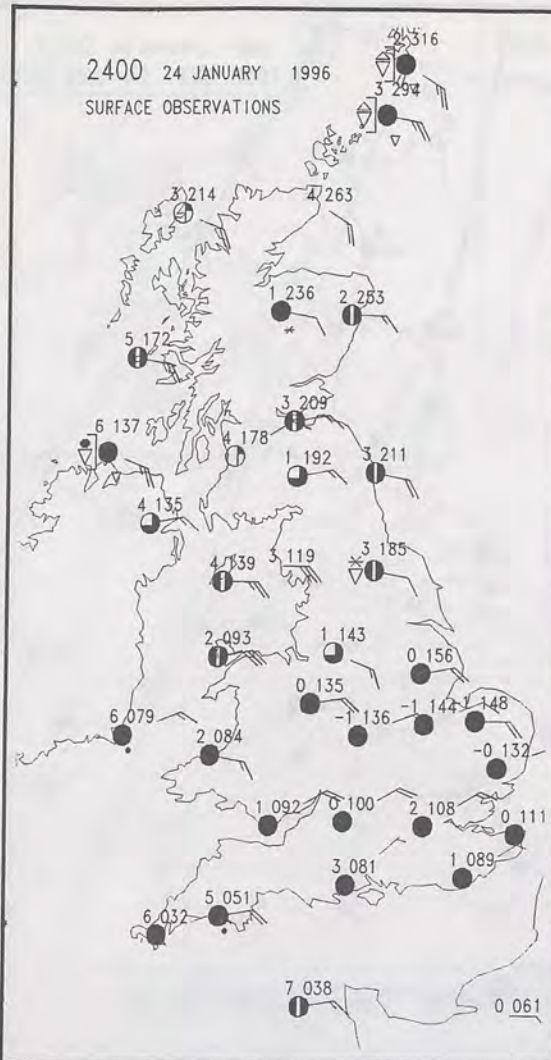 2400 24 JANUARY 1996
SURFACE OBSERVATIONS
2 316
3 294
3 214
4 263
1 236
2 253
5 172
3 209
6 137
4 178
1 192
3 211
4 135
4 139
3 119
3 185
2 093
1 143
0 156
0 135
-1 136
-1 144
148
-0 132
6 079
2 084
1 092
0 100
2 108
0 111
3 081
1 089
5 051
6 032
7 038
0 061